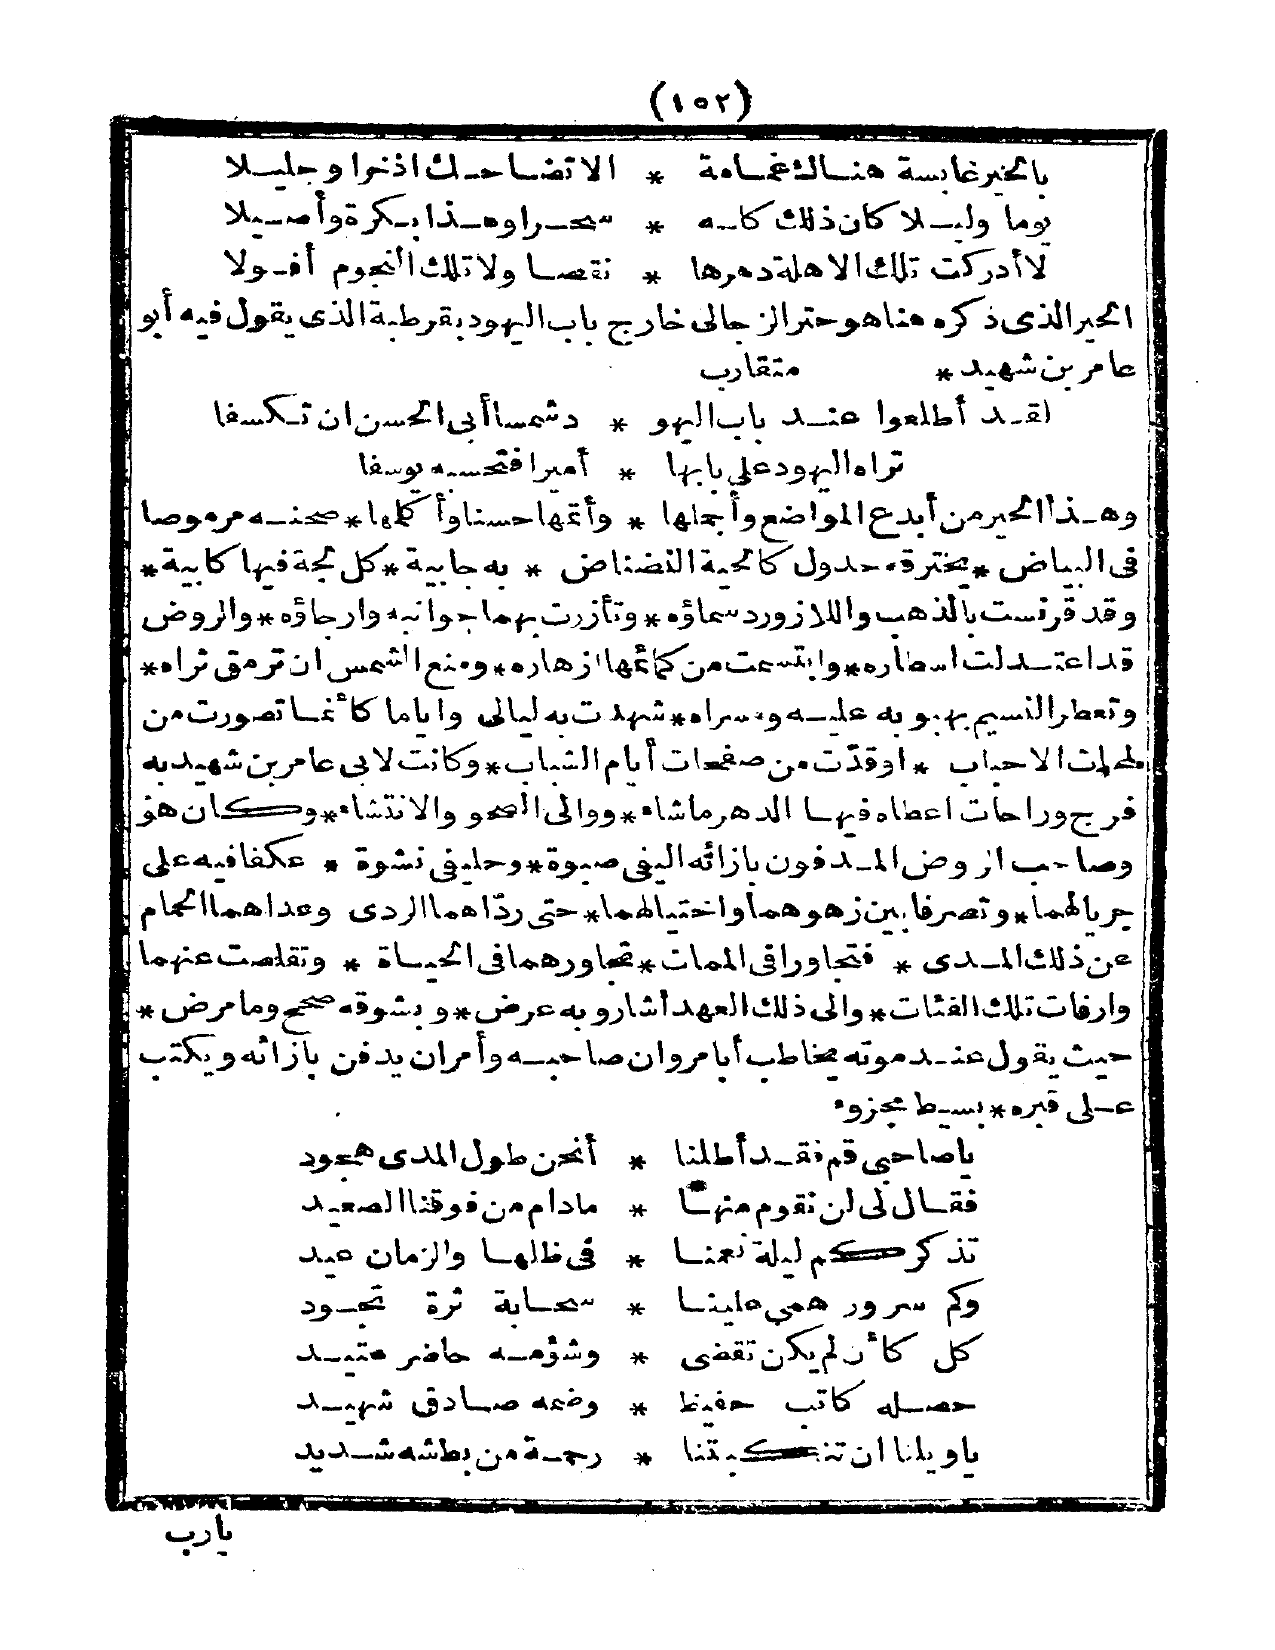 (١٥٢)
بالخير غابسة هنالك غمامة * الا تضاحك اذخرا وجليلا
يوما وليلا كان ذلك كله * سحرا وهذا بكرة وأصيلا
لا أدركت تلك الاهلة دهرها * نقصا ولا تلك النجوم أفولا
الحير الذى ذكره هنا هو حير الزجالى خارج باب اليهود بقرطبة الذى يقول فيه أبو
عامر بن شهيد * متقارب
لقد أطلعوا عند باب اليهو * د شمسا أبى الحسن ان تكسفا
تراه اليهود على بابها * أميرا فتحسبه يوسفا
وهذا الحير من أبدع المواضع وأجملها * وأتمها حسنا وأكملها * صحنه مرموصا
فى البياض * يخترقه جدول كالحية النضناض * به جابية * كل لجة فيها كابية *
وقد قرنست بالذهب واللازورد سماؤه * وتأزرت بهما جوانبه وارجاؤه * والروض
قد اعتدلت اسطاره * وابتسمت من كمائمها ازهاره * ومنع الشمس ان ترمق ثراه *
وتعطر النسيم بهبوبه عليه ومسراه * شهدت به ليالى واياما كأنما تصورت من
لمحات الاحباب * اوقدّت من صفحات أيام الشباب * وكانت لابى عامر بن شهيد به
فرج وراحات اعطاه فيها الدهر ما شاء * ووالى الصحو والانتشاء * وكان هو
وصاحب الروض المدفون بازائه اليفى صبوة * وحليفى نشوة * عكفا فيه على
جريالهما * وتصرفا بين زهوهما واختيالهما * حتى ردّاهما الردى وعداهما الحمام
عن ذلك المدى * فتجاورا فى الممات * تجاورهما فى الحياة * وتقلصت عنهما
وارفات تلك الفئات * والى ذلك العهد أشار وبه عرض * وبشوقه صحح وما مرض *
حيث يقول عند موته يخاطب أبا مروان صاحبه وأمر ان يدفن بازائه ويكتب
على قبره * بسيط مجزوء
يا صاحبى قم فقد أطلنا * أنحن طول المدى هجود
فقال لى لن نقوم منها * مادام من فوقنا الصعيد
تذكر كم ليلة نعمنا * فى ظلها والزمان عيد
وكم سرور همى علينا * سحابة ثرة تجود
كل كأن لم يكن تقضى * وشؤمه حاضر عتيد
حصله كاتب حفيظ * وضمه صادق شهيد
يا ويلنا ان تنكبتنا * رحمة من بطشه شديد
يارب